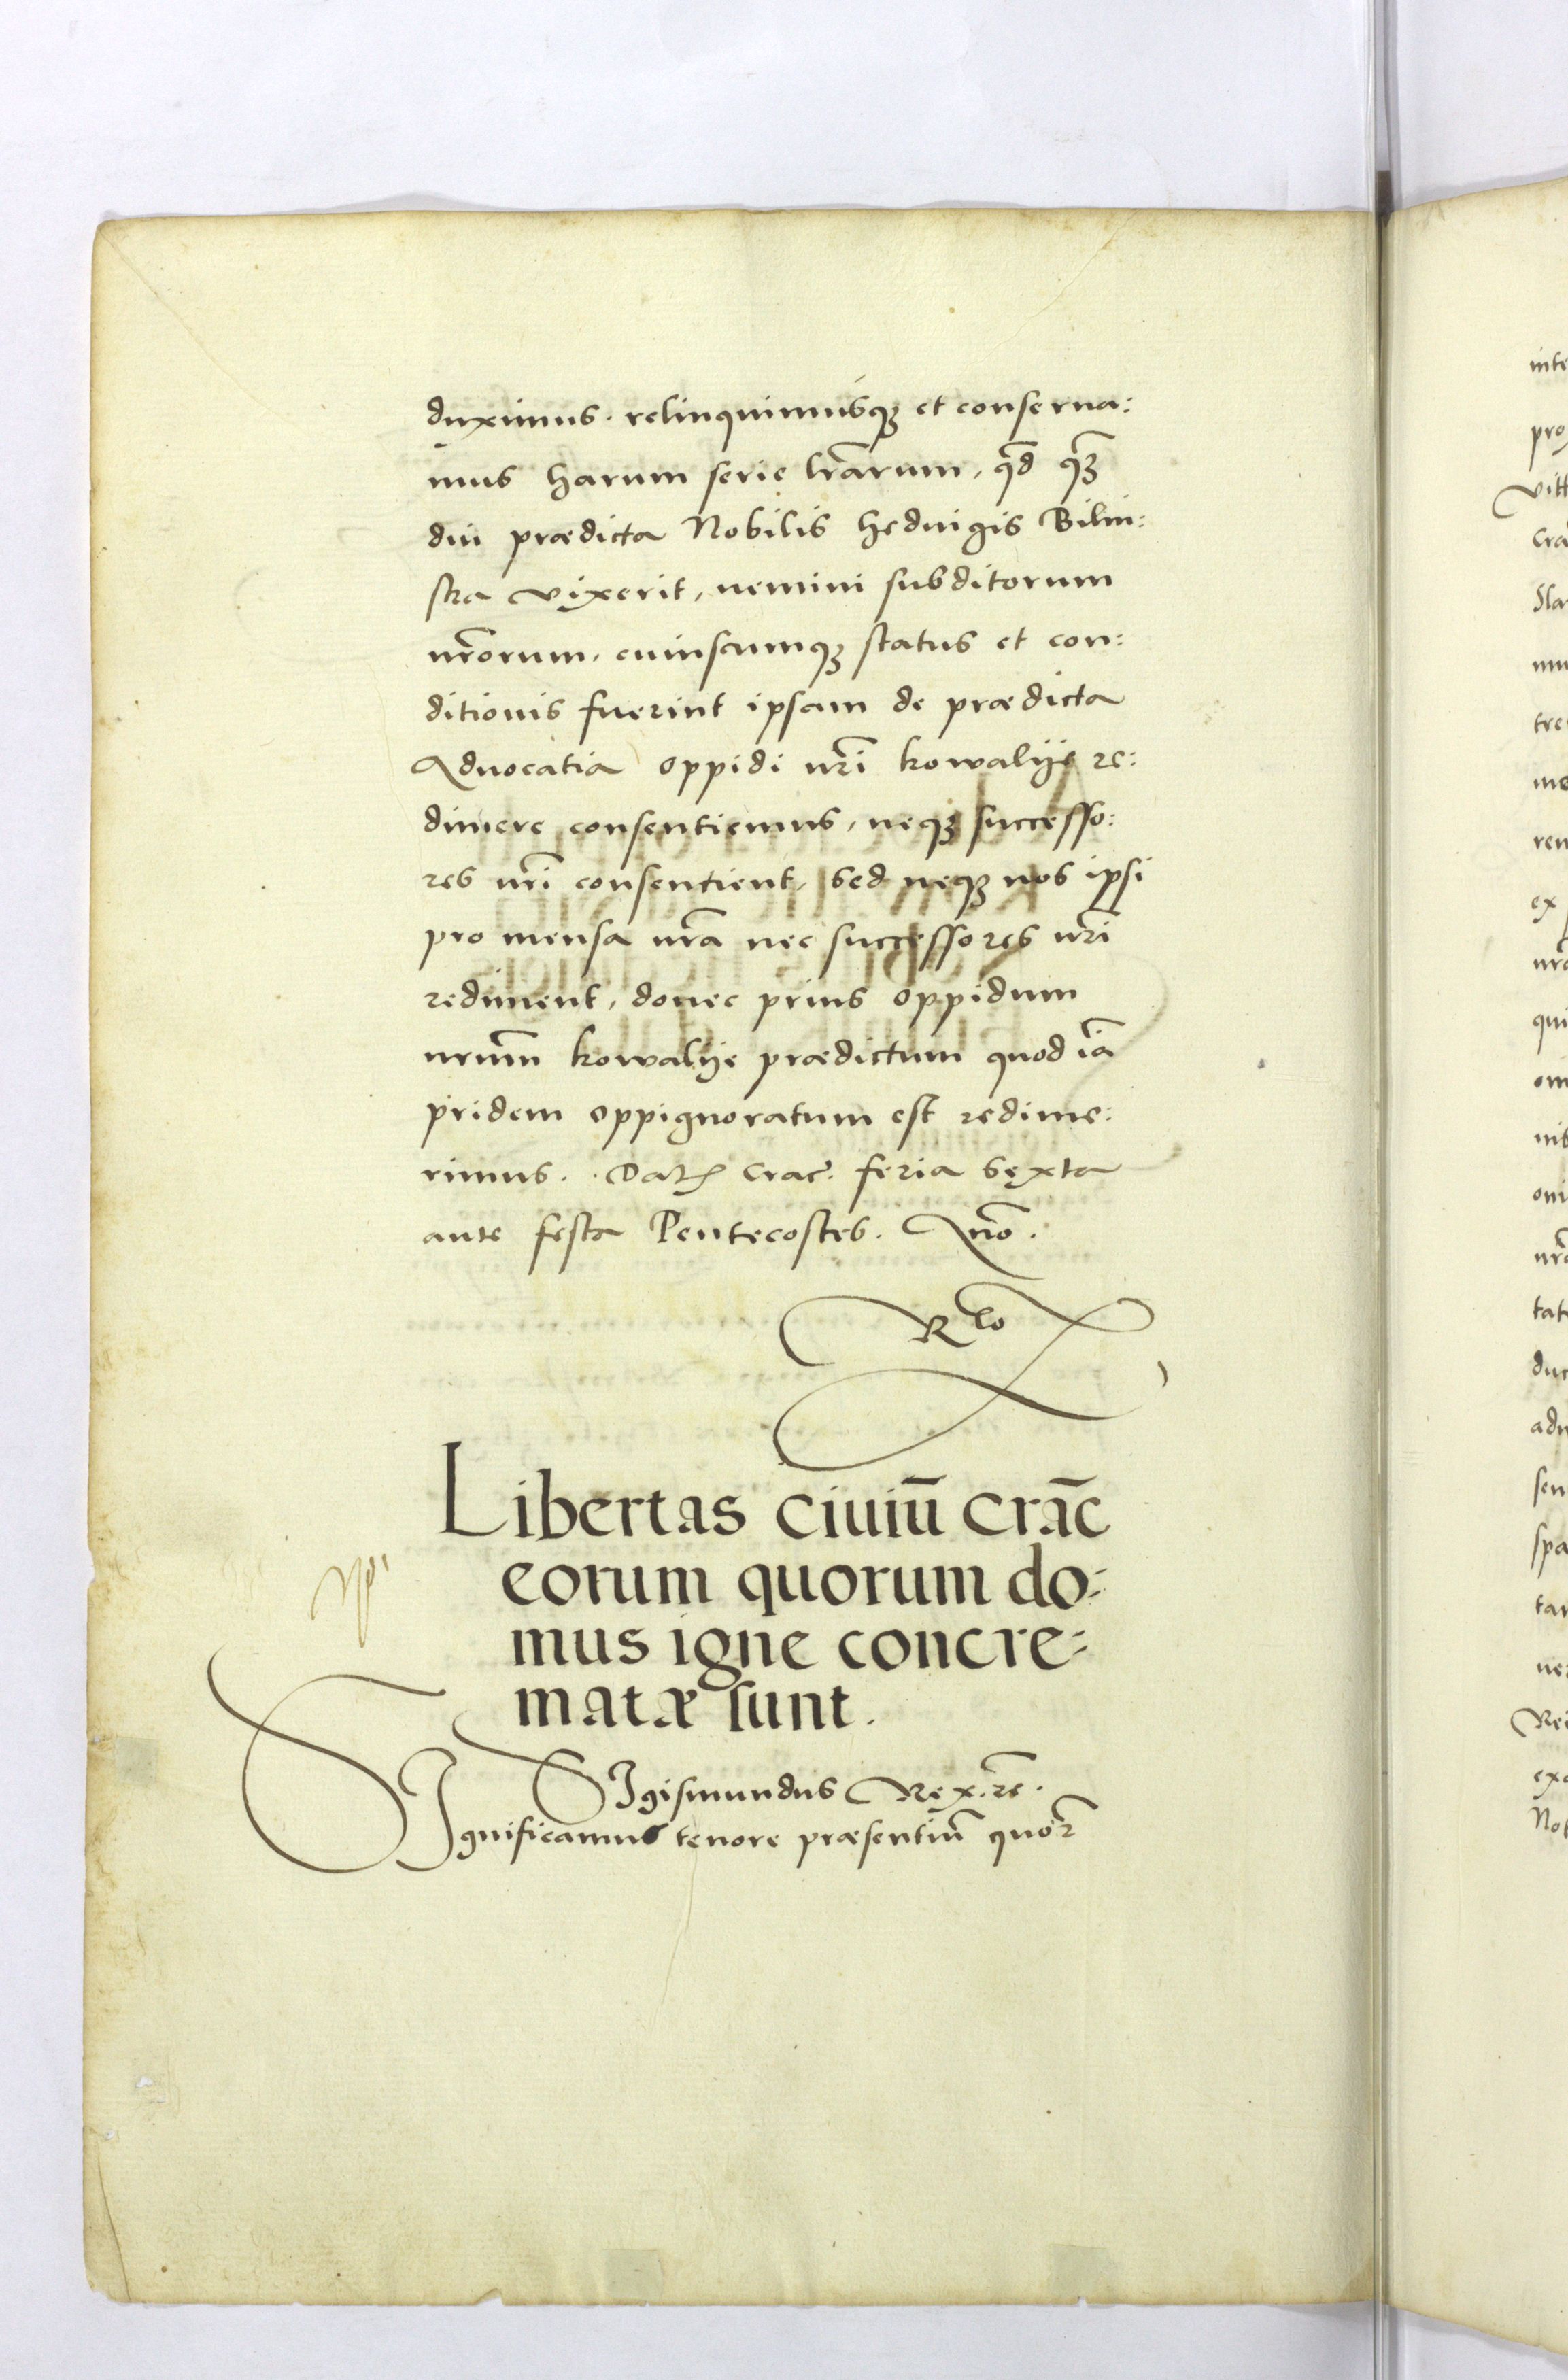 duximus. relinquimusqꝫ et conserua:
mus harum serie lr̃arum, qđ qꝫ̃
diu prædicta Nobilis heduigis Bilin:
ska vixerit, nemini subditorum
nr̃orum, cuiuscumqꝫ status et con:
ditionis fuerint ipsam de prædicta
Aduocatia oppidi nr̃i kowalije re:
dimere consentiemus, neqꝫ successo:
res nr̃i consentient, sed neqꝫ nos ipsi
pro mensa nr̃a nec successores nr̃i
rediment, donec prius oppidum
nrum̃ kowalije prædictum quod iã
pridem oppignoratum est redime:
rimus. Dat Crac̃. feria sexta
ante festa Pentecostes. Añno.
Rlo
Libertas ciuiũ crac̃
eorum quorum do:
mus igne concre:
matæ sunt.
SIgismundus Rex. rc̃.
SIgnificamus tenore præsentiũ quor̃
inte
pro
vitt
Cra
Sla
mu
tre
me
ren
ex
nr̃a
qui
om
nib
oni
nr̃o
tat
duc
adu
sen
spa
tan
ne
Re
exc
Not